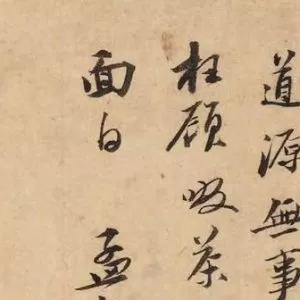 道源無事
枉顧啜茶
面白 孟